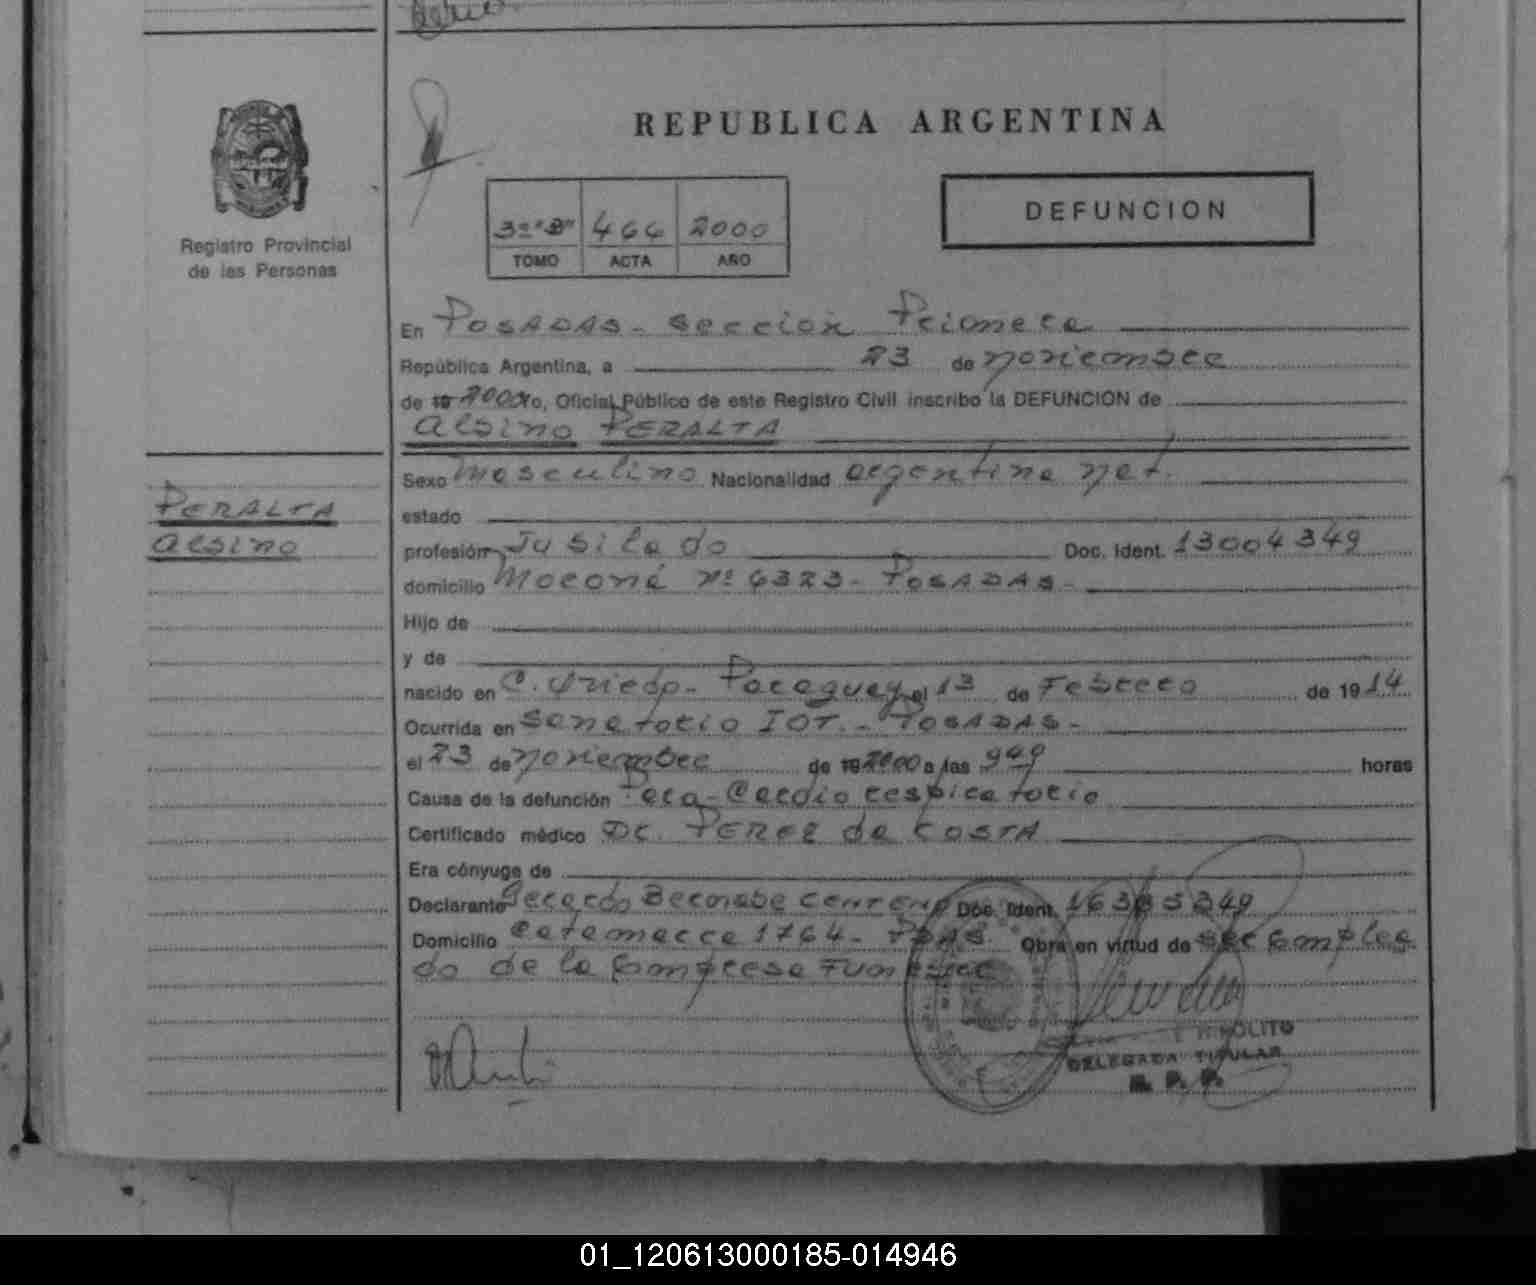 REPUBLICA ARGENTINA
Registro Provincial
de las Personas
3º "B" 464 2000
TOMO ACTA AÑO
DEFUNCION
En Posadas - Sección Primera
República Argentina, a 23 de Noviembre
de 19 2000 Yo, Oficial Público de este Registro Civil inscribo la DEFUNCION de
Alsino PERALTA
PERALTA
Alsino
Sexo Masculino Nacionalidad argentina nat.
estado
profesión Jubilado Doc. Ident. 13004349
domicilio Moconá Nº 6323 - POSADAS -
Hijo de
y de
nacido en C. Oviedo - Paraguay el 13 de Febrero de 1914
Ocurrida en Sanatorio IOT. - POSADAS -
el 23 de Noviembre de 19 2000 a las 949 horas
Causa de la defunción Paro - Cardio respiratorio
Certificado médico Dr. PEREZ da COSTA
Era cónyuge de
Declarante Gerardo Bernabe CENTENO Doc. Ident.
Domicilio Catamarca 1764 - PDAS. Obra en virtud de ser Emplea
do de la Empresa Funebre
HIPOLITO
DELEGADA TITULAR
R. P. P.
01_120613000185-014946